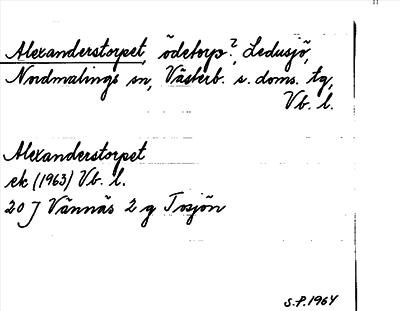 Alexanderstorpet, ödetorp?, Ledusjö,
Nordmalings sn, Västerb. s. doms. tg,
Vb. l.
Alexanderstorpet
ek (1963) Vb. l.
20 J Vännäs 2 g Tosjön
S.P. 1964